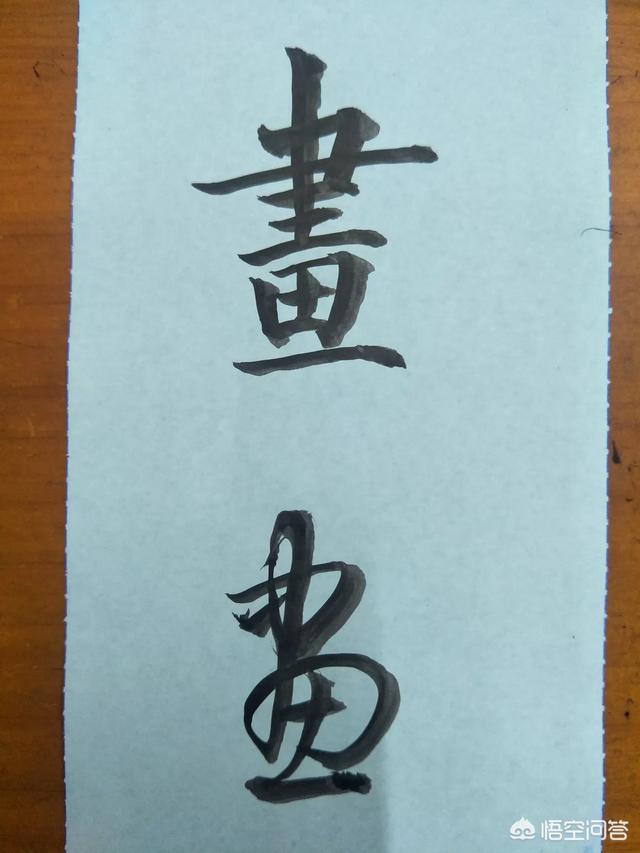 畫
畫
悟空问答